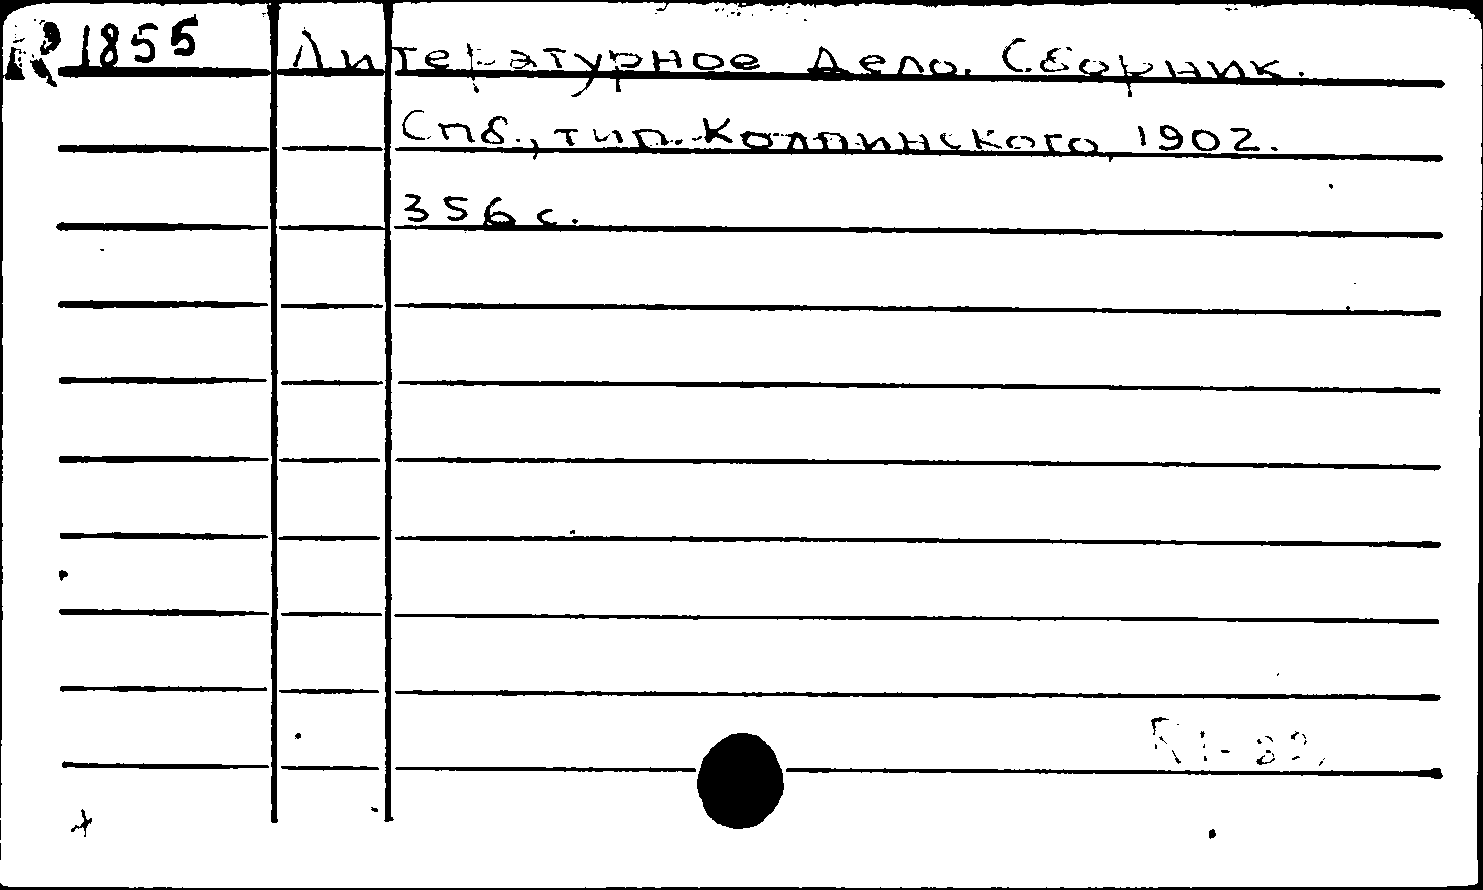 R 1855 Литературное дело. Сборник.
Спб., тип. Колпинского, 1902.
356 с.